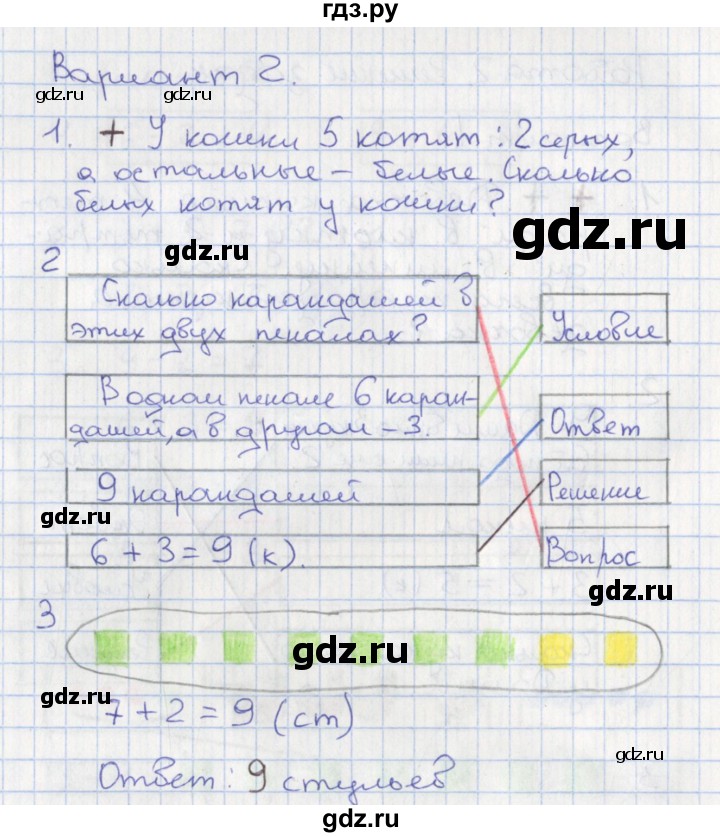 гдз.ру
Вариант 2.
gdz.ru
gdz.ru
1. + У кошки 5 котят : 2 серых,
а остальные – белые. Сколько
белых котят у кошки?
gdz.ru
gdz.ru
2
Сколько карандашей в
этих двух пеналах?
Условие
В одном пенале 6 каран-
дашей, а в другом – 3.
Ответ
9 карандашей
Решение
gdz.ru
6 + 3 = 9 (к).
Вопрос
gdz.ru
3
gdz.ru
gdz.ru
7 + 2 = 9 (ст)
gdz.ru
Ответ: 9 стульев
gdz.ru